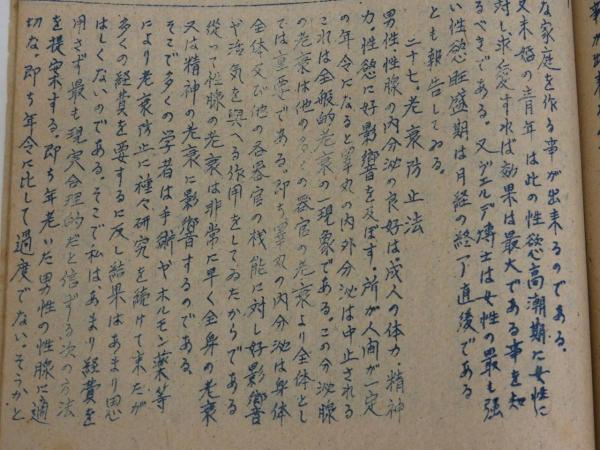 な家庭を作る事が出来るのである。
又未婚の青年は此の性慾高潮期に女性に
対し求愛すれば効果は最大である事を知
るべきである。又ヴエルデ博士は女性の最も強
い性慾旺盛期は月経の終了直後である
とも報告してゐる。
二十七、老衰防止法
男性、性腺の内分泌の良好は、成人の体力、精神
力、性慾に好影響を及ぼす、所が人間が一定
の年令になると睾丸の内外分泌は中止される
これは全般的老衰の一現象である。この分泌腺
の老衰は他の多くの器官の老衰より全体とし
ては重要である。即ち睾丸の内分泌は身体
全体及び他の各器官の機能に対し好影響
や活気を與へる作用をしてゐたからである
従って性腺の老衰は非常に早く全身の老衰
又は精神の老衰に影響するのである。
そこで多くの学者は手術やホルモン薬等
により老衰防止に種々研究を続けて来たが
多くの経費を要するに反し結果はあまり思
はしくないのである。そこで私は、あまり経費を
用さず最も現実合理的だと信ずる次の方法
を提案する。即ち年老いた男性の性腺に適
切な、即ち年令に比して過度でない、そうかと